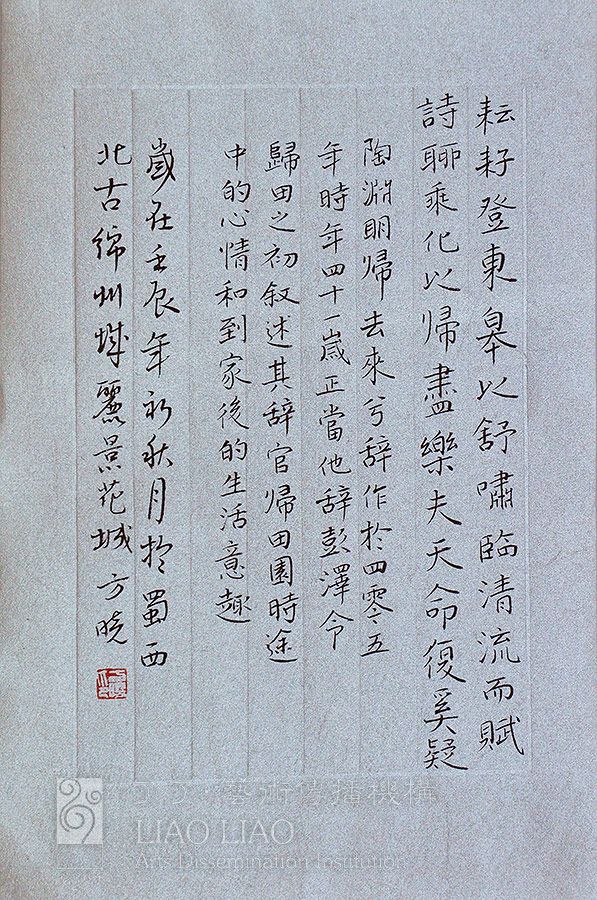 耘耔登東皋以舒嘯臨清流而賦
詩聊乘化以歸盡樂夫天命復奚疑
陶淵明歸去來兮辭作於四零五
年時年四十一嵗正當他辞彭澤令
歸田之初叙述其辞官歸田園時途
中的心情和到家後的生活意趣
嵗在壬辰年初秋月於蜀西
北古綿州城麗景花城方曉
藝術傳播機構
LIAO LIAO
Arts Dissemination Institution